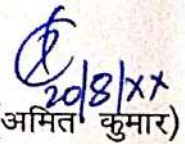 20/8/XX
अमित कुमार)